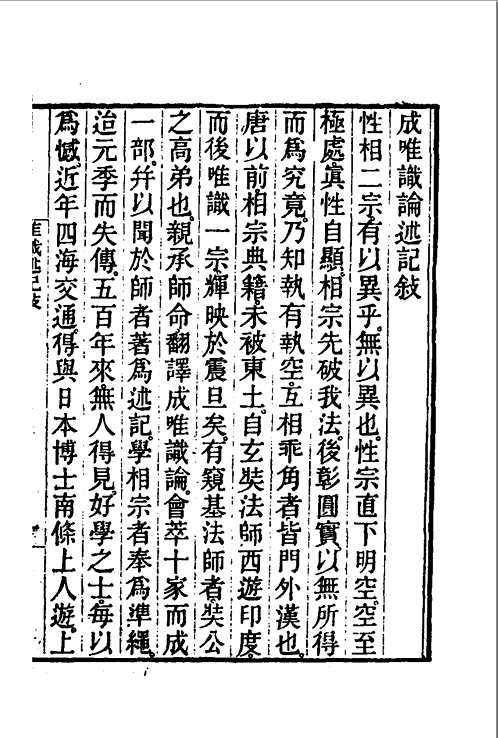 成唯識論述記敍
性相二宗有以異乎。無以異也。性宗直下明空。空至
極處。眞性自顯。相宗先破我法。後彰圓實。以無所得
而爲究竟。乃知執有執空。互相乖角者。皆門外漢也。
唐以前相宗典籍。未被東土。自玄奘法師西遊印度。
而後唯識一宗。輝映於震旦矣。有窺基法師者。奘公
之高弟也。親承師命。翻譯成唯識論。會萃十家而成
一部。幷以聞於師者。著爲述記。學相宗者。奉爲準繩。
迨元季而失傳。五百年來。無人得見。好學之士。每以
爲憾。近年四海交通。得與日本博士南條上人遊。上
唯識述記敍